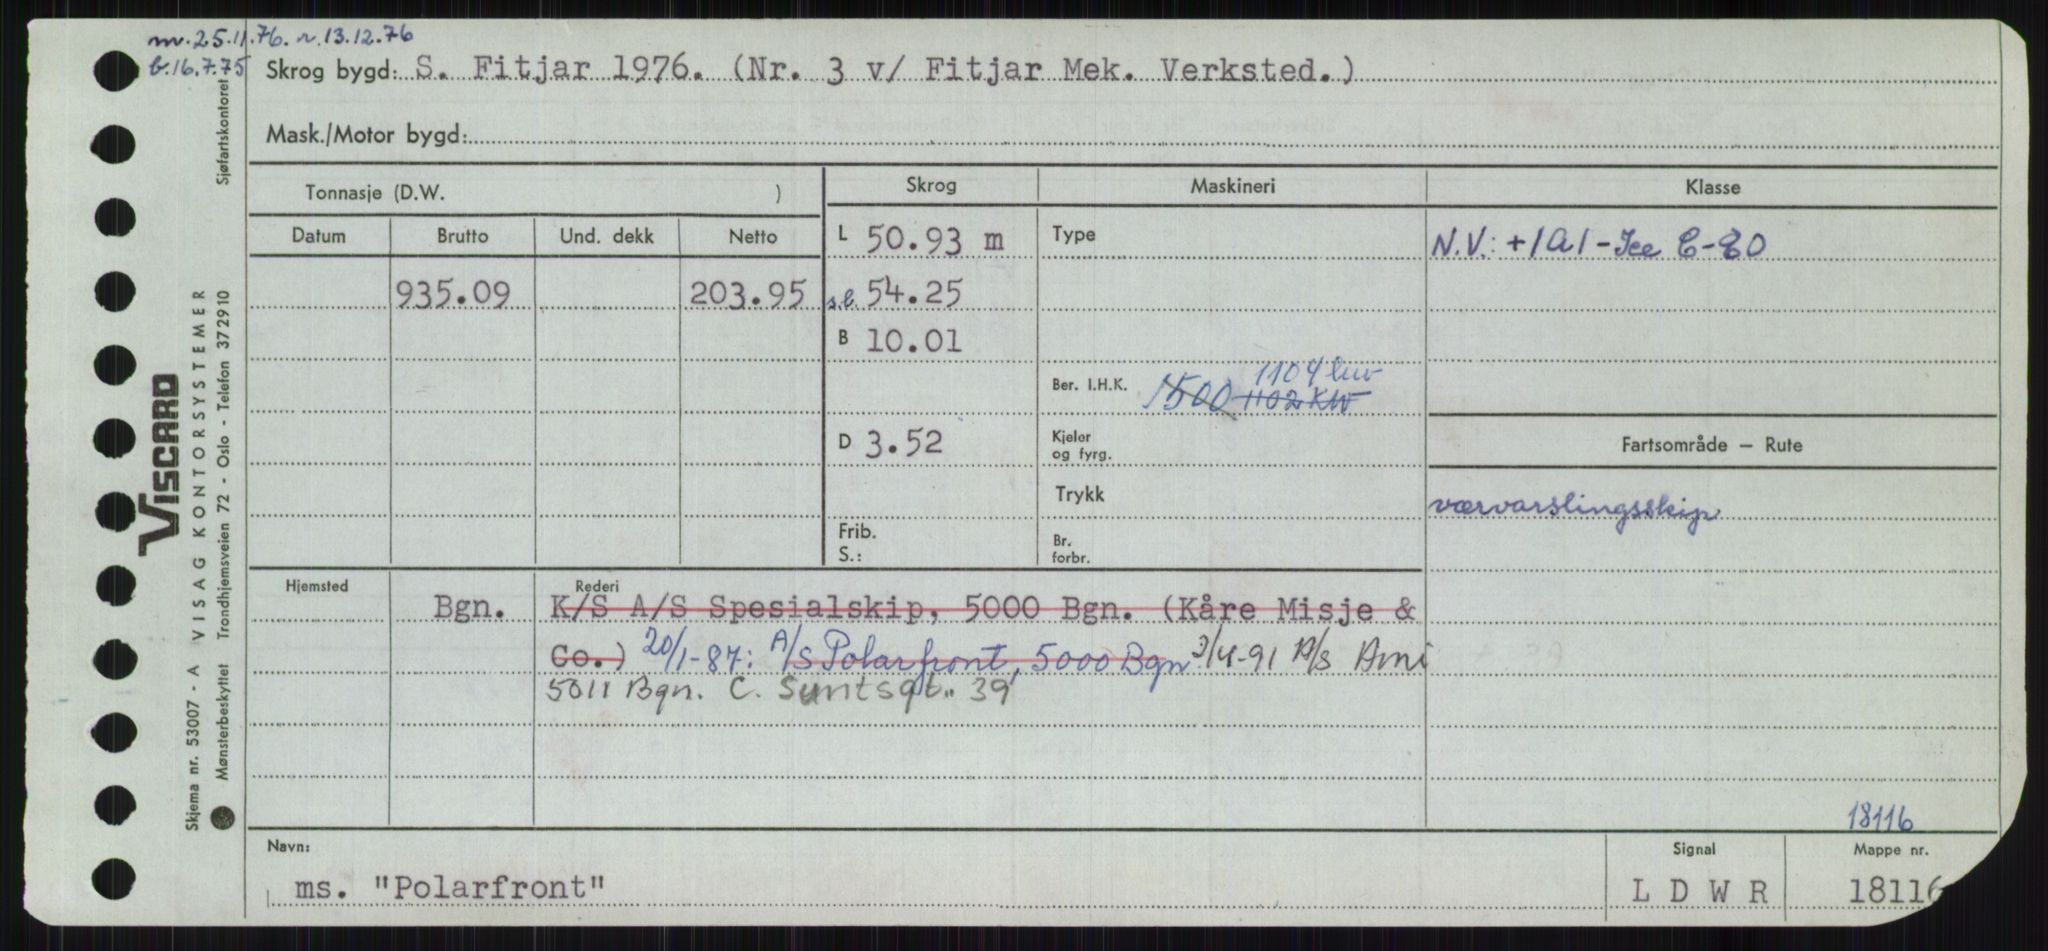 m. 25.11.76. r. 13.12.76
b. 16.7.75 Skrog bygd: S. Fitjar 1976. (Nr. 3 v/ Fitjar Mek. Verksted.)
Mask./Motor bygd:
Sjøfartskontoret
Tonnasje (D.W. ) Skrog Maskineri Klasse
Datum Brutto Und. dekk Netto L 50.93 m Type N.V.: +1A1-Ice C-E0
935.09 203.95 s.l. 54.25
B 10.01
Ber. I.H.K. 1500 1102 KW 1104 kw
D 3.52 Kjeler og fyrg. Fartsområde — Rute
Trykk værvarslingsskip
Frib. Br.
S.: forbr.
Hjemsted Rederi
Bgn. K/S A/S Spesialskip, 5000 Bgn. (Kåre Misje &
Co.) 20/1-87: A/S Polarfront, 5000 Bgn 3/4-91 A/S Ami
5011 Bgn. C. Suntsgt. 39
18116
Navn: Signal Mappe nr.
ms. "Polarfront" L D W R 18116
VISCARD
Skjema nr. 53007 - A VISAG KONTORSYSTEMER
Mønsterbeskyttet Trondhjemsveien 72 - Oslo - Telefon 372910